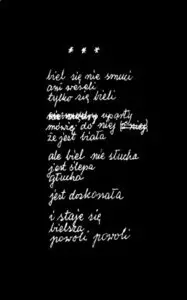 * * *
biel się nie smuci
ani weseli
tylko się bieli
uparty
mówię do niej
że jest biała
ale biel nie słucha
jest ślepa
głucha
jest doskonała
i staje się
bielsza
powoli powoli